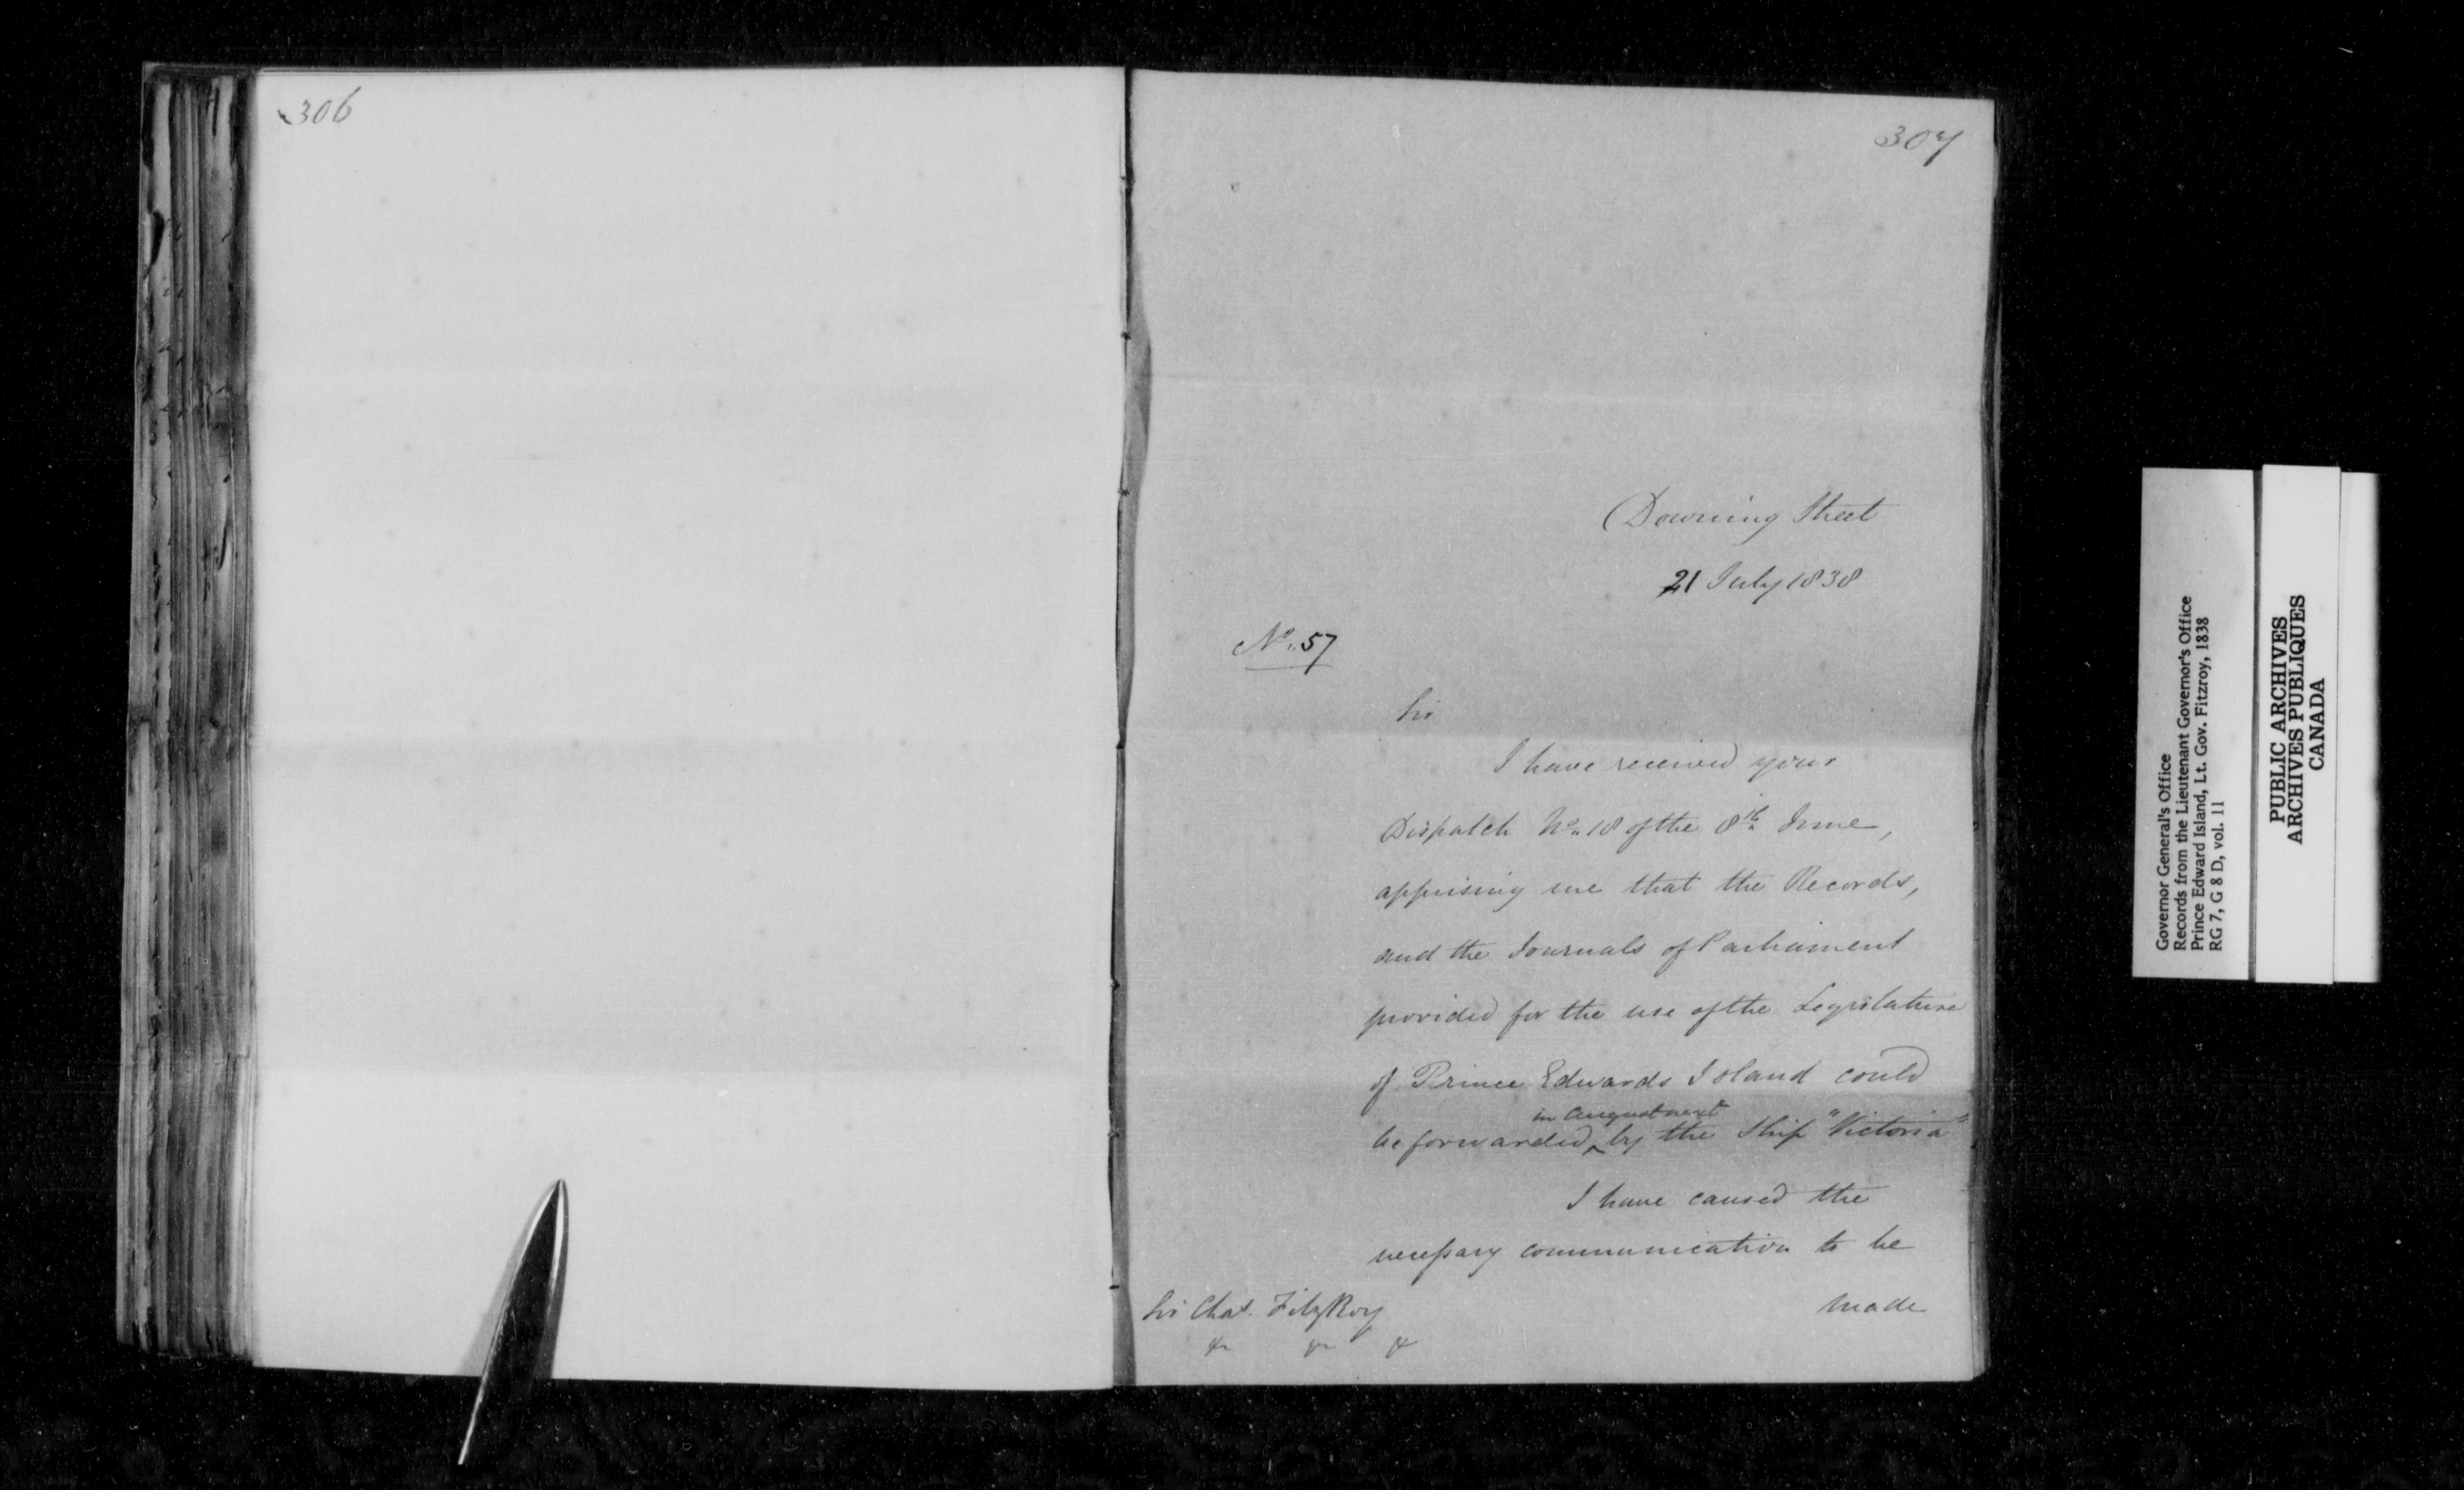 306
307
Downing Street
21 July 1838
No. 57
Sir
I have received your
Dispatch No. 18 of the 8th June,
apprising me that the Records,
and the Journals of Parliament
provided for the use of the Legislature
of Prince Edwards Island could
be forwarded ^in August next by the Ship "Victoria"
I have caused the
necessary communication to be
made
Sir Chas. FitzRoy
&c &c &c
Governor General's Office
Records from the Lieutenant Governor's Office
Prince Edward Island, Lt. Gov. Fitzroy, 1838
RG 7, G 8 D, vol. 11
PUBLIC ARCHIVES
ARCHIVES PUBLIQUES
CANADA